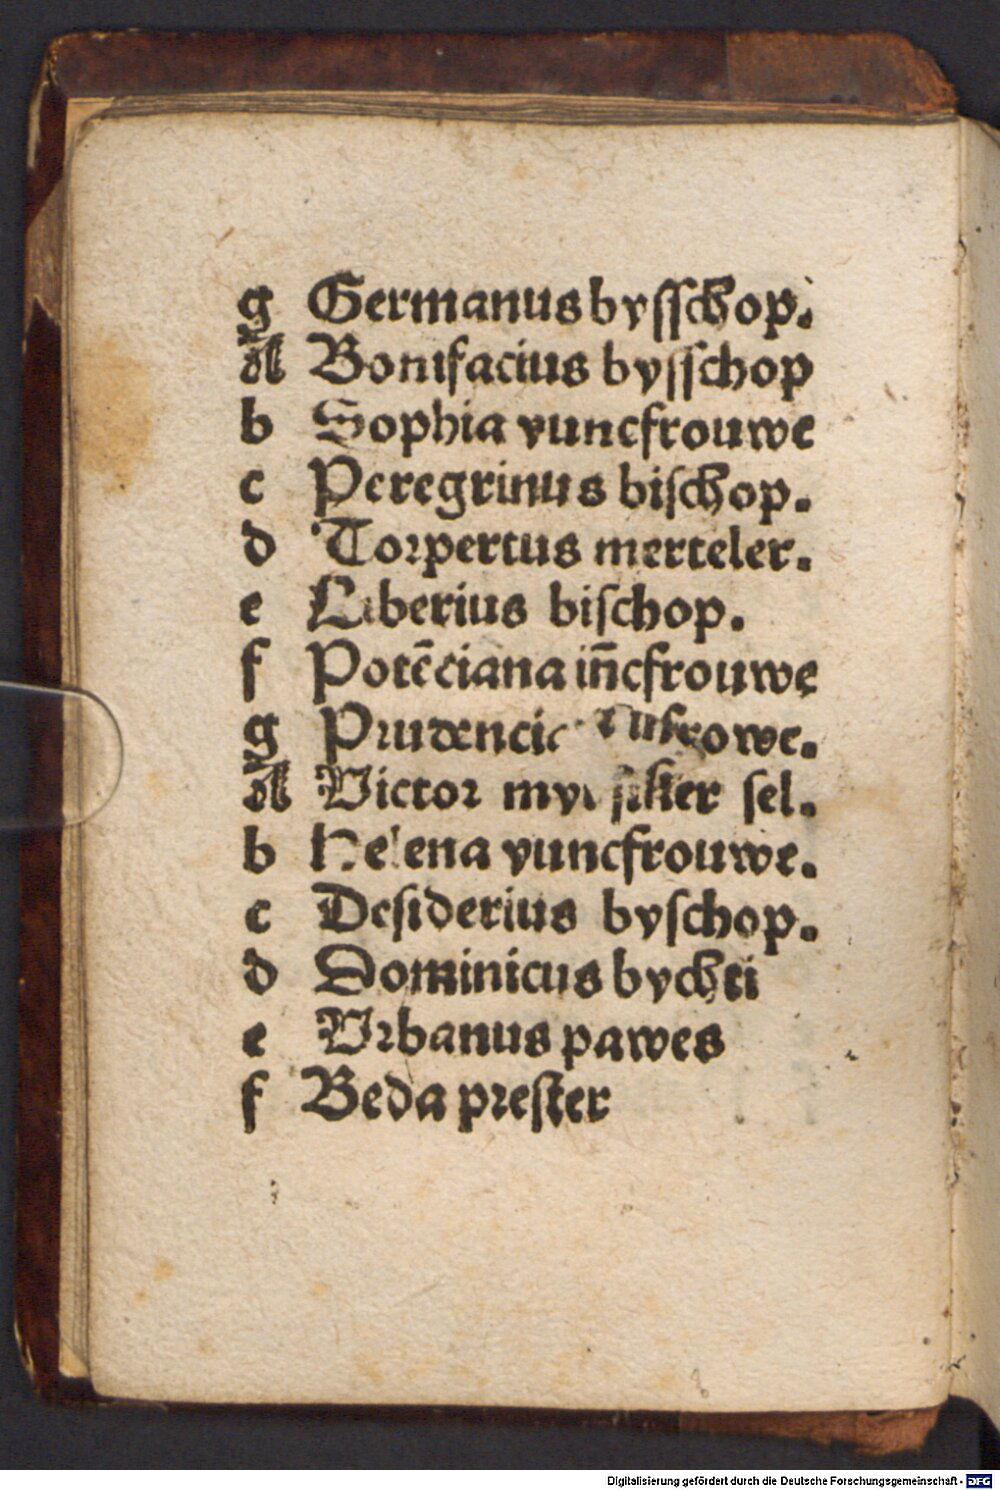 g Germanus bysschop.
A Bonifacius bysschop
b Sophia yuncfrouwe
c Peregrinus bischop.
d Torpertus merteler.
e Liberius bischop.
f Potēciana iūcfrouwe
g Prudencia
A Victor sel.
b Helena yuncfrouwe.
c Desiderius byschop.
d Dominicus bychti
e Vrbanus pawes
f Beda prester
Digitalisierung gefördert durch die Deutsche Forschungsgemeinschaft - DFG